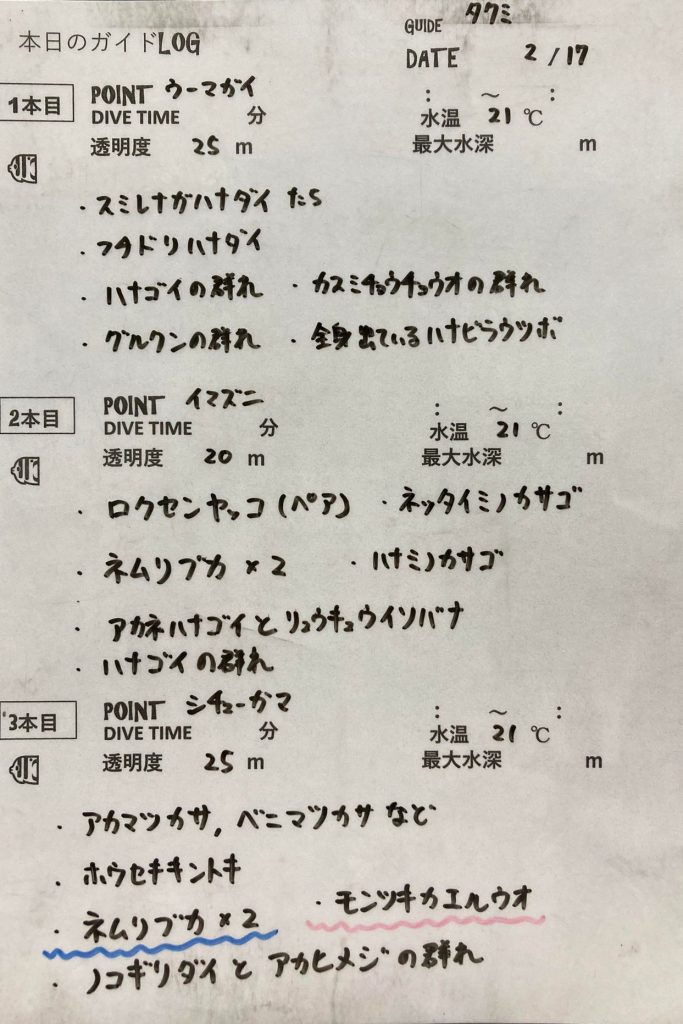 本日のガイドLOG
GUIDE タクミ
DATE 2/17
1本目 POINT ウーマガイ : ～ :
DIVE TIME 分 水温 21 ℃
透明度 25 m 最大水深 m
・スミレナガハナダイ たち
・フタドリハナダイ
・ハナゴイの群れ ・カスミチョウチョウオの群れ
・グルクンの群れ ・全身出ているハナビラウツボ
2本目 POINT イマズニ : ～ :
DIVE TIME 分 水温 21 ℃
透明度 20 m 最大水深 m
・ロクセンヤッコ(ペア) ・ネッタイミノカサゴ
・ネムリブカ×2 ・ハナミノカサゴ
・アカネハナゴイとリュウキュウイソバナ
・ハナゴイの群れ
3本目 POINT シチューガマ : ～ :
DIVE TIME 分 水温 21 ℃
透明度 25 m 最大水深 m
・アカマツカサ, ベニマツカサなど
・ホウセキキントキ
・ネムリブカ×2 ・モンツキカエルウオ
・ノコギリダイとアカヒメジの群れ